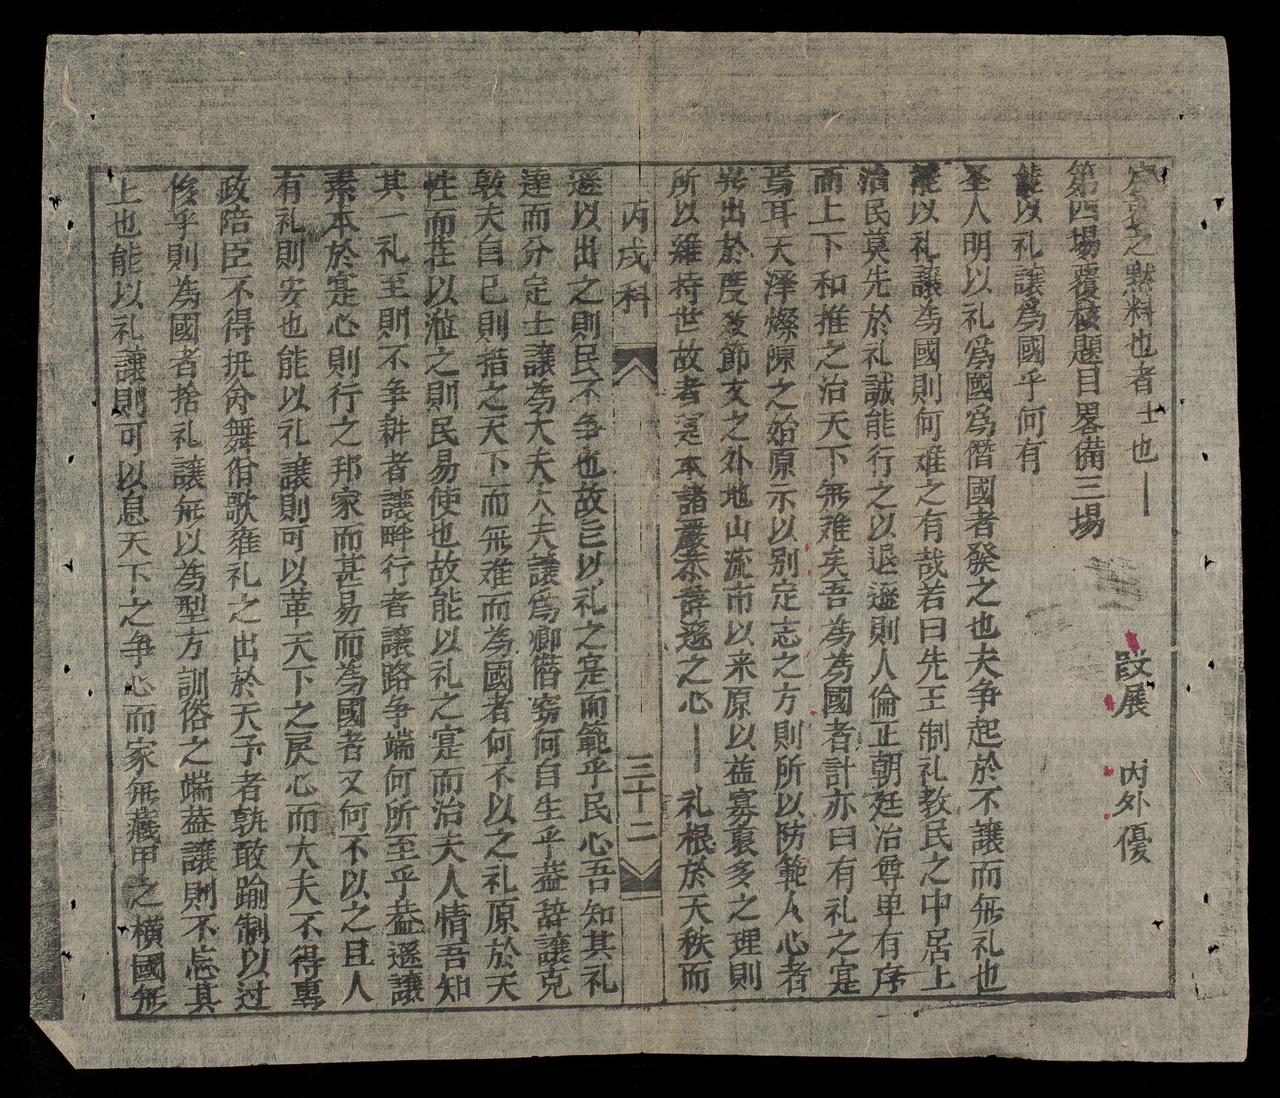 之㸃料也者士也
第四場覆核題目畧備三場
段展 内外優
能以礼讓爲國乎何有
圣人明以礼爲國爲僭國者發之也夫争起於不讓而無礼也
能以礼讓為國則何难之有哉若曰先王制礼教民之中居上
治民莫先於礼誠能行之以退遜則人倫正朝廷治尊卑有序
而上下和推之治天下無难矣吾為為國者計亦曰有礼之寔
焉耳天澤燦陳之始原示以别定志之方則所以防範人心者
出於度数節文之外地山流市以来原以益寡裒多之理則
所以維持世故者寔本諸嚴恭辞遜之心 礼根於天秩而
丙戌科
三十二
遜以出之則民不争也故曰以礼之寔而範乎民心吾知其礼
達而分定士讓為大夫大夫讓爲卿僭窃何自生乎葢辞讓克
敦夫自己則措之天下而無难而為國者何不以之礼原於天
性而莊以涖之則民易使也故能以礼之寔而治夫人情吾知
其一礼至則不争耕者讓畔行者讓路争端何所至乎葢遜讓
素本於寔心則行之邦家而甚易而為國者又何不以之且人
有礼則安也能以礼讓則可以革天下之戾心而大夫不得專
政陪臣不得抗命舞佾歌雍礼之出於天子者孰敢踰制以过
侈乎則為國者捨礼讓無以為型方訓俗之端葢讓則不忘其
上也能以礼讓則可以息天下之争心而家無藏甲之横國無